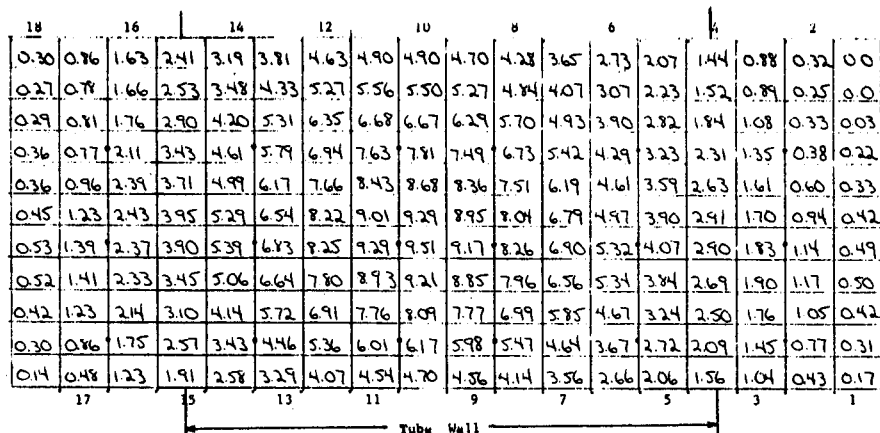 18 16 14 12 10 8 6 4 2
0.30 0.86 1.63 2.41 3.19 3.81 4.63 4.90 4.90 4.70 4.28 3.65 2.73 2.07 1.44 0.88 0.32 0.0
0.27 0.78 1.66 2.53 3.48 4.33 5.27 5.56 5.50 5.27 4.84 4.07 3.07 2.23 1.52 0.89 0.25 0.0
0.29 0.81 1.76 2.90 4.20 5.31 6.35 6.68 6.67 6.29 5.70 4.93 3.90 2.82 1.84 1.08 0.33 0.03
0.36 0.77 2.11 3.43 4.61 5.79 6.94 7.63 7.81 7.49 6.73 5.42 4.29 3.23 2.31 1.35 0.38 0.22
0.36 0.96 2.39 3.71 4.99 6.17 7.66 8.43 8.68 8.36 7.51 6.19 4.61 3.59 2.63 1.61 0.60 0.33
0.45 1.23 2.43 3.95 5.29 6.54 8.22 9.01 9.29 8.95 8.04 6.79 4.97 3.90 2.91 1.70 0.94 0.42
0.53 1.39 2.37 3.90 5.39 6.83 8.25 9.29 9.51 9.17 8.26 6.90 5.32 4.07 2.90 1.83 1.14 0.49
0.52 1.41 2.33 3.45 5.06 6.64 7.80 8.93 9.21 8.85 7.96 6.56 5.34 3.84 2.69 1.90 1.17 0.50
0.42 1.23 2.14 3.10 4.14 5.72 6.91 7.76 8.09 7.77 6.99 5.85 4.67 3.24 2.50 1.76 1.05 0.42
0.30 0.86 1.75 2.57 3.43 4.46 5.36 6.01 6.17 5.98 5.47 4.64 3.67 2.72 2.09 1.45 0.77 0.31
0.14 0.48 1.23 1.91 2.58 3.29 4.07 4.54 4.70 4.56 4.14 3.56 2.66 2.06 1.56 1.04 0.43 0.17
17 15 13 11 9 7 5 3 1
Tube Wall